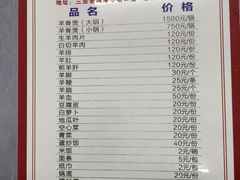 地址：三亚
品名 价格
羊骨煲（大锅） 1500元/锅
羊骨煲（小锅） 750元/锅
生羊肉片 120元/份
白切羊肉 120元/份
羊排 120元/份
羊肚 120元/份
煎羊肝 120元/份
羊脚 30元/个
羊杂 25元/条
羊脑 50元/个
羊血 50元/份
豆腐皮 20元/份
白萝卜 20元/份
地瓜叶 20元/份
空心菜 20元/份
青菜 20元/份
蛋炒饭 40元/份
米饭 2元/碗
面条 5元/包
纸巾 2元/包
锅底 20元/份